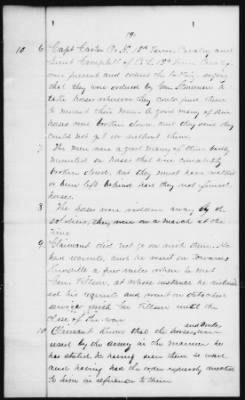 10. 6 Capt Carter Co K. 13th Tenn Cavalry and
Lieut Campbell of Co 13th Tenn Cavalry
were present and ordered the taking, saying
that they were ordered by Gen Stoneman to
take horses wherever they could find them
to remount their men. A good many of their
horses were broken down and they said they
could not go on without them.
7 The men were a good many of them being
mounted on horses that were completely
broken down, and they must have walked
or been left behind had they not found
horses.
8 The horses were ridden away by the
soldiers, they were on a march at the
time.
9 Claimant did not go on with them. He
had recruits, and he went on towards
Knoxville a few miles where he met
Gen Tillson, at whose instance he
his recruits and went on detached
service with Gen Tillson until the
close of the war
10 Claimant knows that the horses were
used by the army in the manner he
has stated, he having seen them so used
and having had the order expressly
to him in reference to them